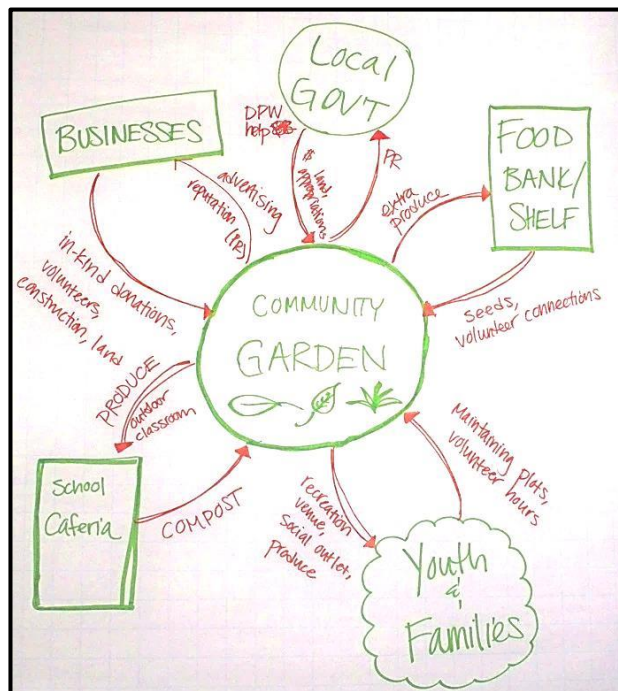 Local
GOV'T
BUSINESSES
FOOD
BANK/
SHELF
DPW
help
$ land,
appropriations
PR
advertising
reputation (PR)
extra
produce
in-kind donations,
volunteers,
construction, land
seeds,
volunteer connections
COMMUNITY
GARDEN
PRODUCE
outdoor
classroom
School
Caferia
COMPOST
recreation
venue,
social outlet,
produce
Maintaining plots,
volunteer hours
Youth
&
Families